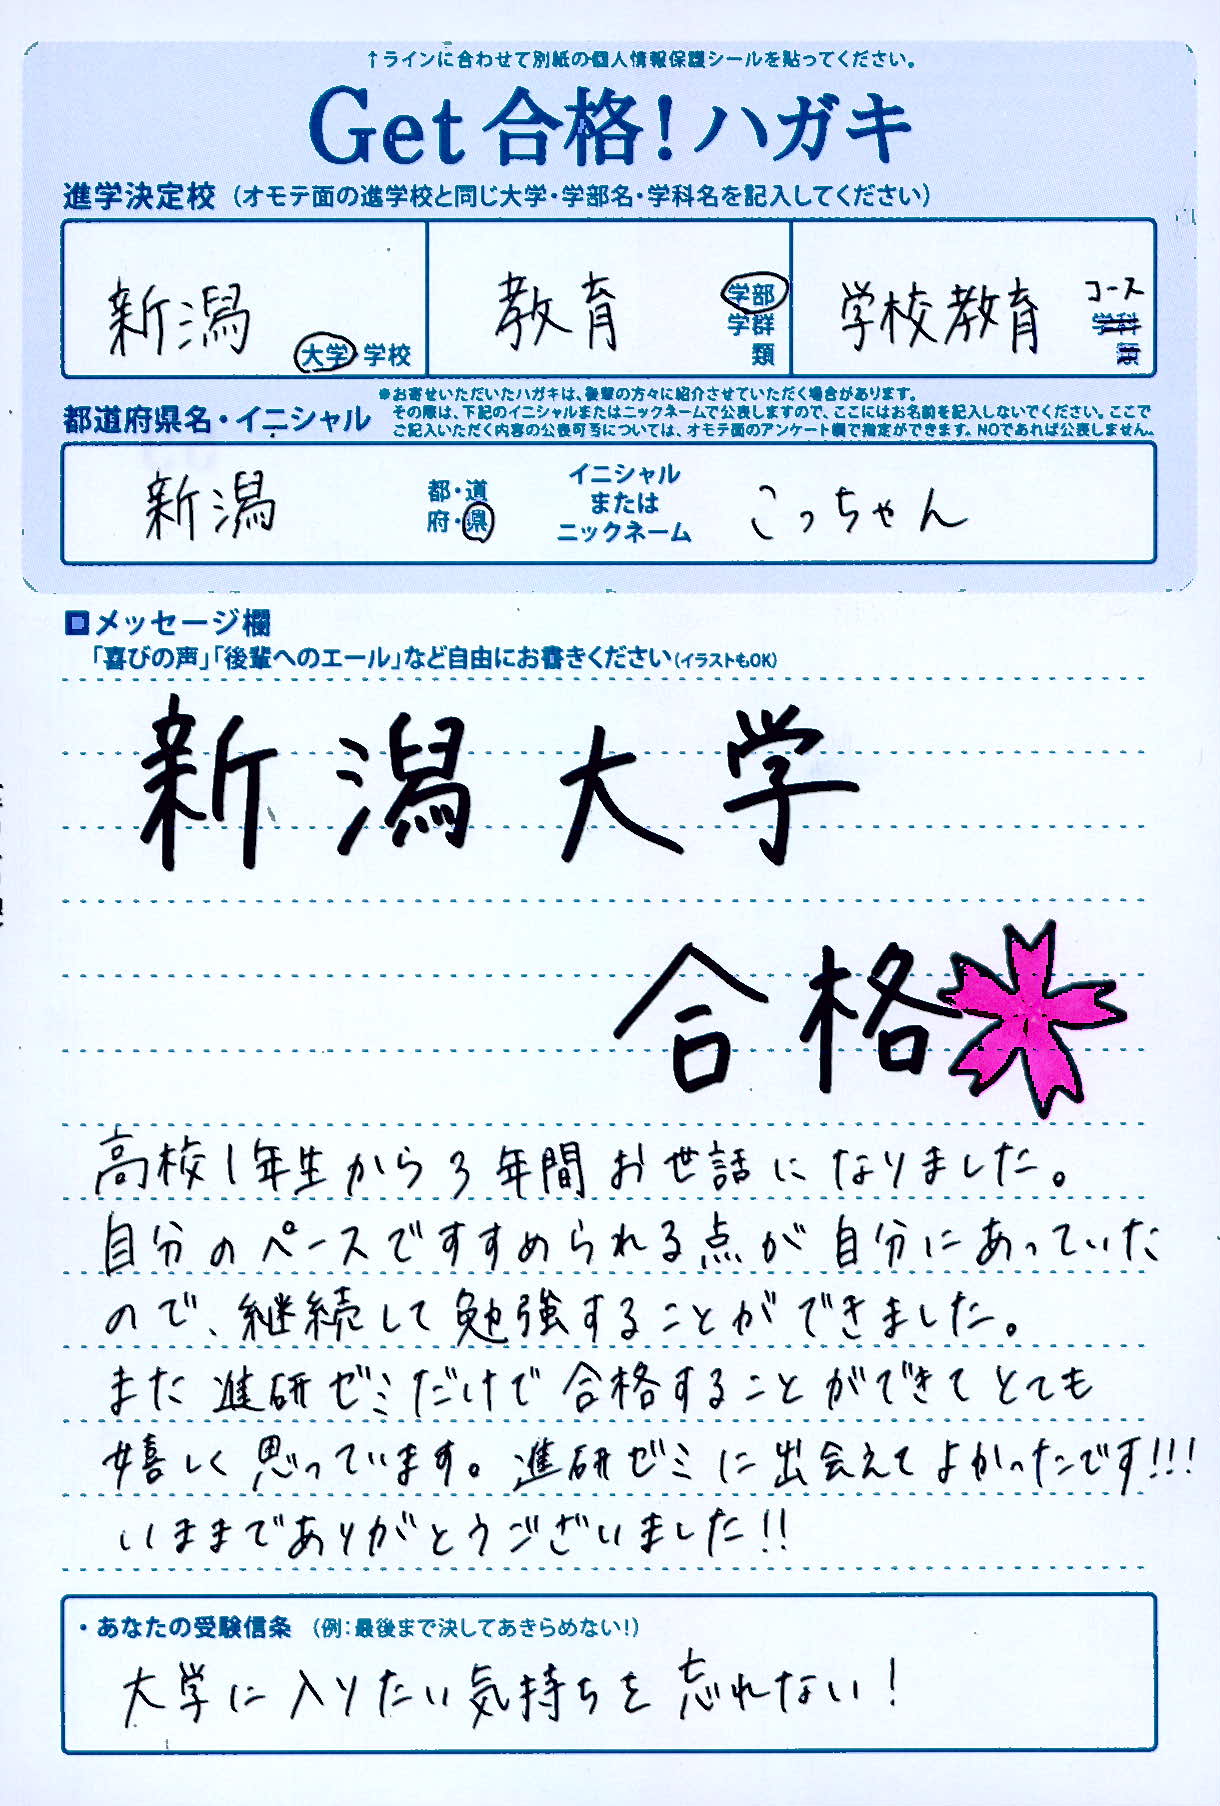 ↑ラインに合わせて別紙の個人情報保護シールを貼ってください。
Get 合格！ハガキ
進学決定校（オモテ面の進学校と同じ大学・学部名・学科名を記入してください）
新潟 大学・学校 教育 学部 学群 類 学校教育 コース 学科 類
都道府県名・イニシャル
※お寄せいただいたハガキは、後輩の方々に紹介させていただく場合があります。
その際は、下記のイニシャルまたはニックネームで公表しますので、ここにはお名前を記入しないでください。ここで
ご記入いただく内容の公表可否については、オモテ面のアンケート欄で指定ができます。NOであれば公表しません。
新潟 都・道 府・県 イニシャル または ニックネーム こっちゃん
■メッセージ欄
「喜びの声」「後輩へのエール」など自由にお書きください（イラストもOK）
新潟大学
合格
高校1年生から3年間お世話になりました。
自分のペースですすめられる点が自分にあっていた
ので、継続して勉強することができました。
また進研ゼミだけで合格することができてとても
嬉しく思っています。進研ゼミに出会えてよかったです!!!
いままでありがとうございました!!
・あなたの受験信条（例：最後まで決してあきらめない！）
大学に入りたい気持ちを忘れない！